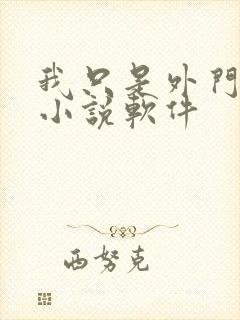 我只是外門
小說軟件
西努克